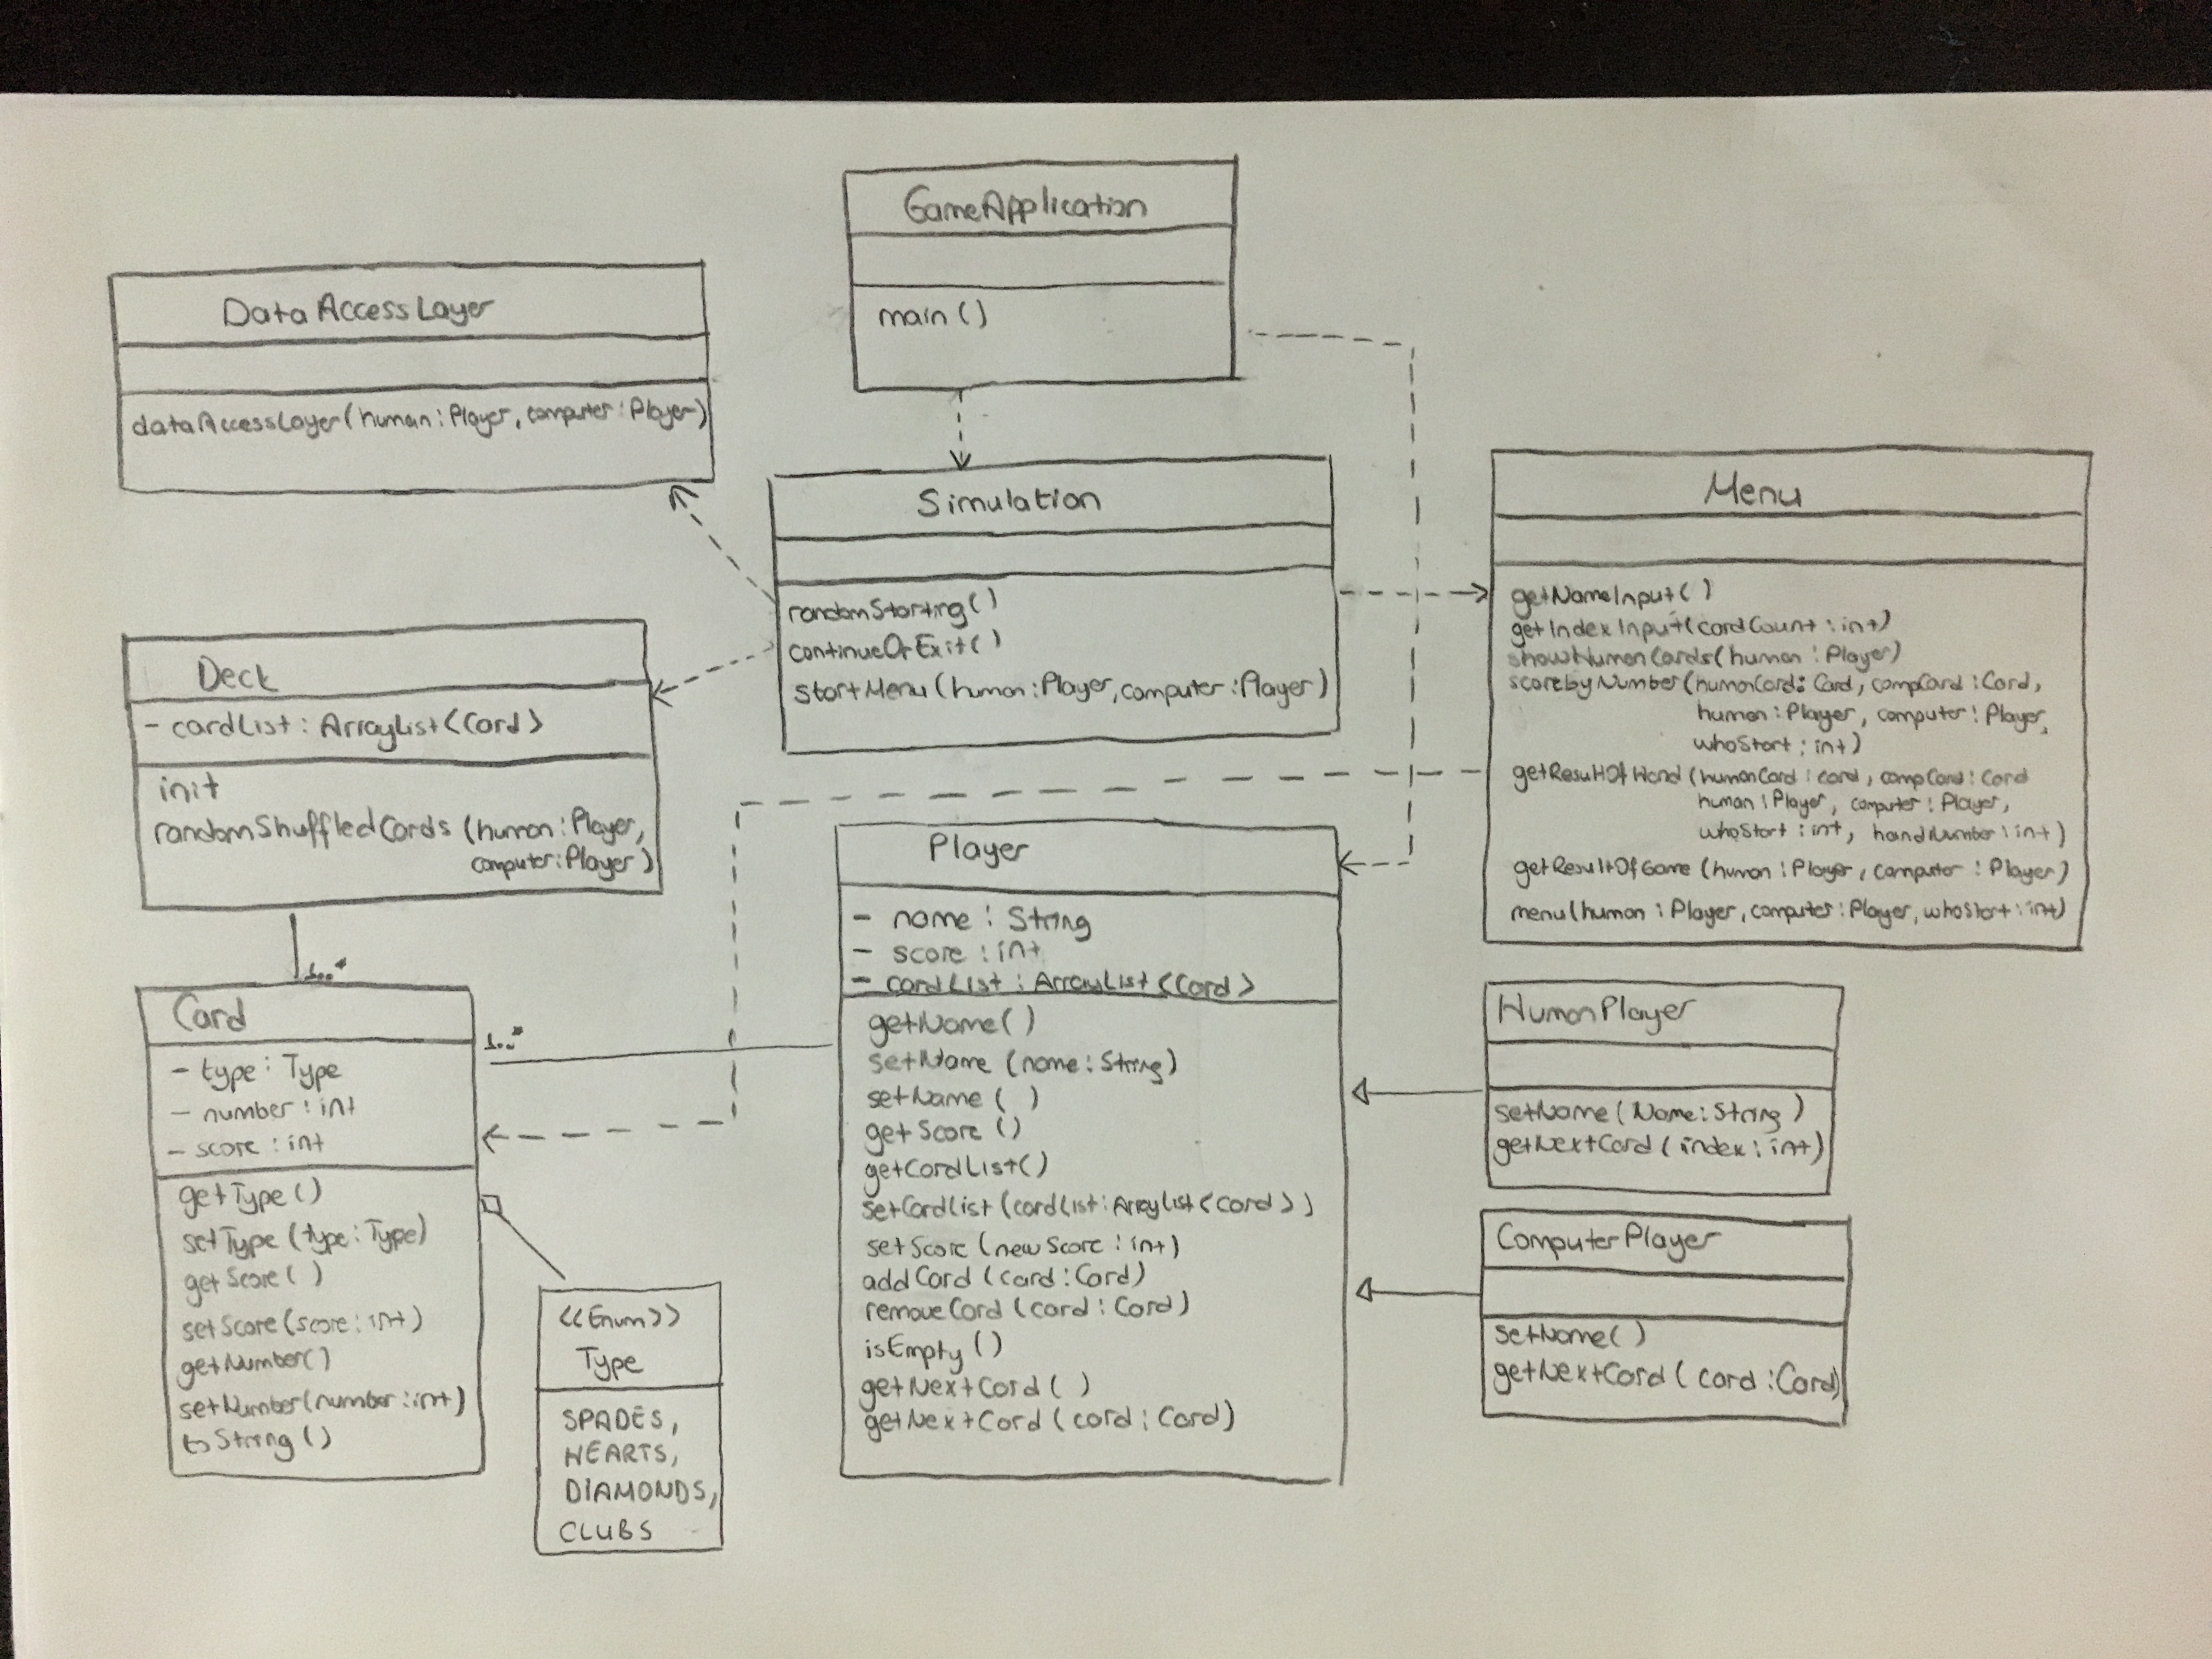 GameApplication
main()
DataAccessLayer
dataAccessLayer(human:Player, computer:Player)
Simulation
randomStarting()
continueOrExit()
startMenu(human:Player, computer:Player)
Menu
getNameInput()
getIndexInput(cardCount:int)
showHumanCards(human:Player)
scorebyNumber(humanCard:Card, compCard:Card,
human:Player, computer:Player,
whoStart:int)
getResultOfHand(humanCard:card, compCard:Card
human:Player, computer:Player,
whoStart:int, handNumber:int)
getResultOfGame(human:Player, computer:Player)
menu(human:Player, computer:Player, whoStart:int)
Deck
- cardList: ArrayList<Card>
init
randomShuffledCards(human:Player,
computer:Player)
1..*
Card
- type: Type
- number:int
- score:int
getType()
setType(type:Type)
getScore()
setScore(score:int)
getNumber()
setNumber(number:int)
toString()
1..*
<<Enum>>
Type
SPADES,
HEARTS,
DIAMONDS,
CLUBS
Player
- name: String
- score:int
- cardList: ArrayList<Card>
getName()
setName(name:String)
setName()
getScore()
getCardList()
setCardList(cardList:ArrayList<Card>)
setScore(newScore:int)
addCard(card:Card)
removeCard(card:Card)
isEmpty()
getNextCard()
getNextCard(card:Card)
HumanPlayer
setName(Name:String)
getNextCard(index:int)
ComputerPlayer
setName()
getNextCard(card:Card)